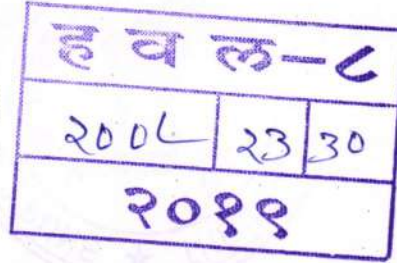 ह व ल-८
२००८ २३ ३०
२०१९